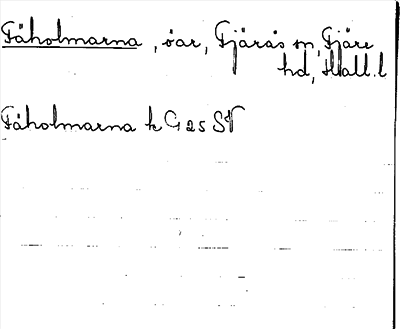 Fåholmarna, öar, Fjärås sn, Fjäre
hd, Hall. l
Fåholmarna k G 25 SV